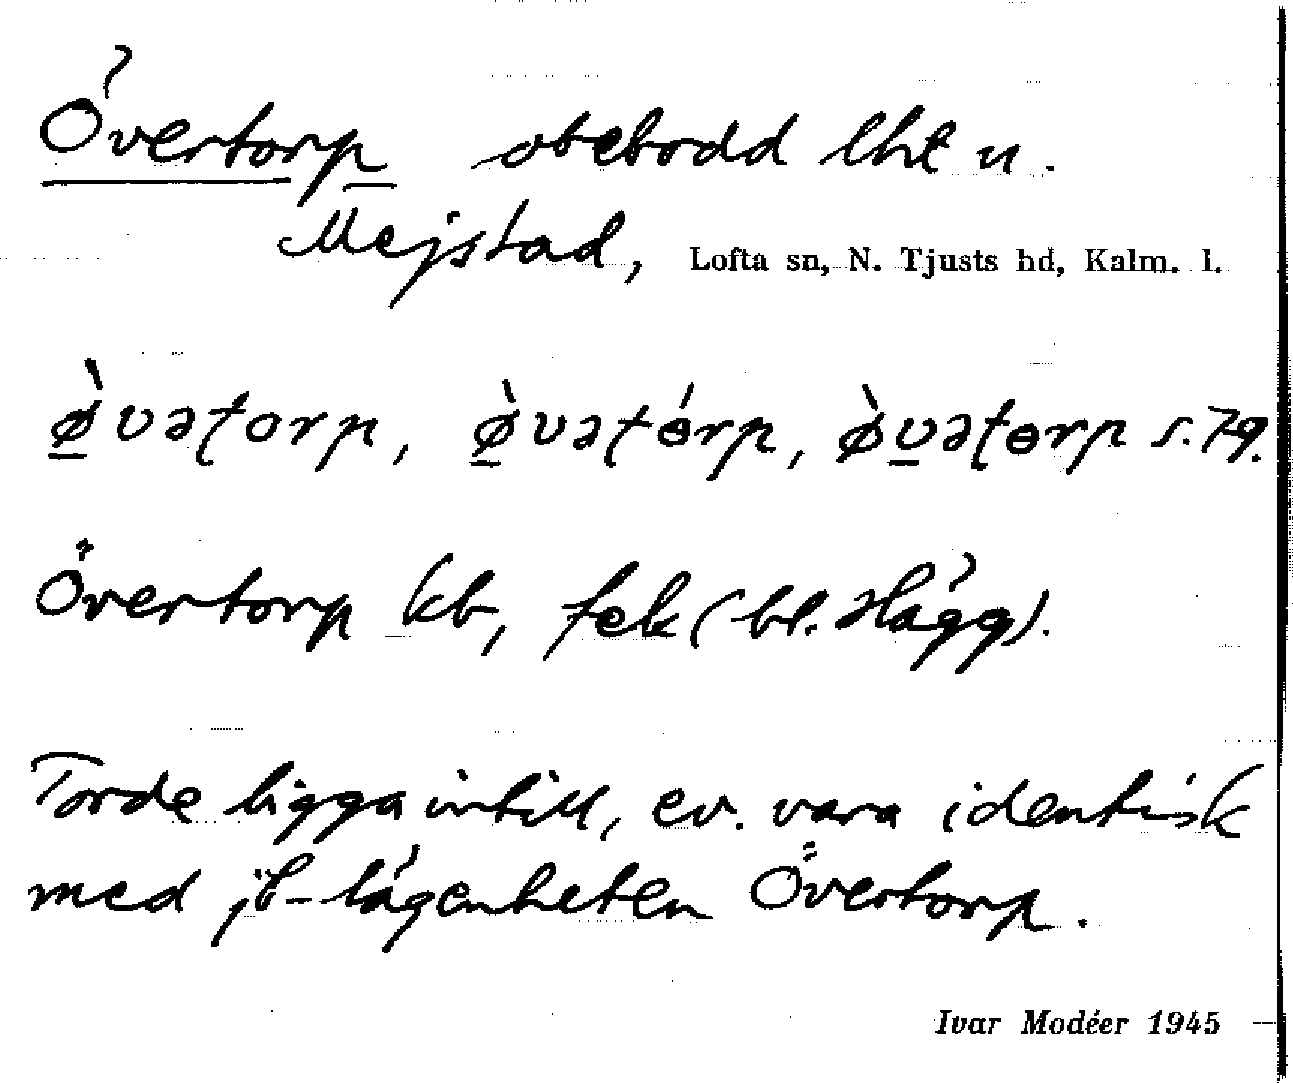 Övertorp obebodd lht u.
Mejstad, Lofta sn, N. Tjusts hd, Kalm. l.
ø̀vatorp, ø̀vatórp, ø̀vatorp s. 79.
Övertorp kb, fek (bl. Hägg).
Torde ligga intill, ev. vara identisk
med jb-lägenheten Övertorp.
Ivar Modéer 1945